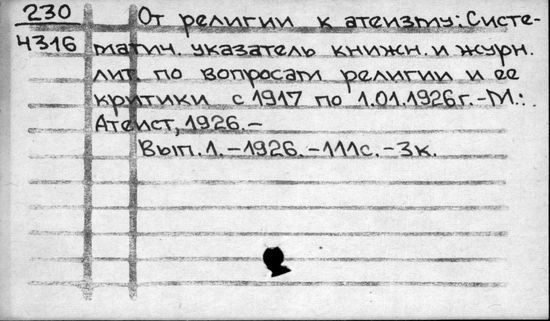 230
4316
От религии к атеизму: Систе-
матич. указатель книжн. и журн.
лит. по вопросам религии и ее
критики с 1917 по 1.01.1926г.-М.:
Атеист, 1926.-
Вып.1.-1926.-111с.-3к.